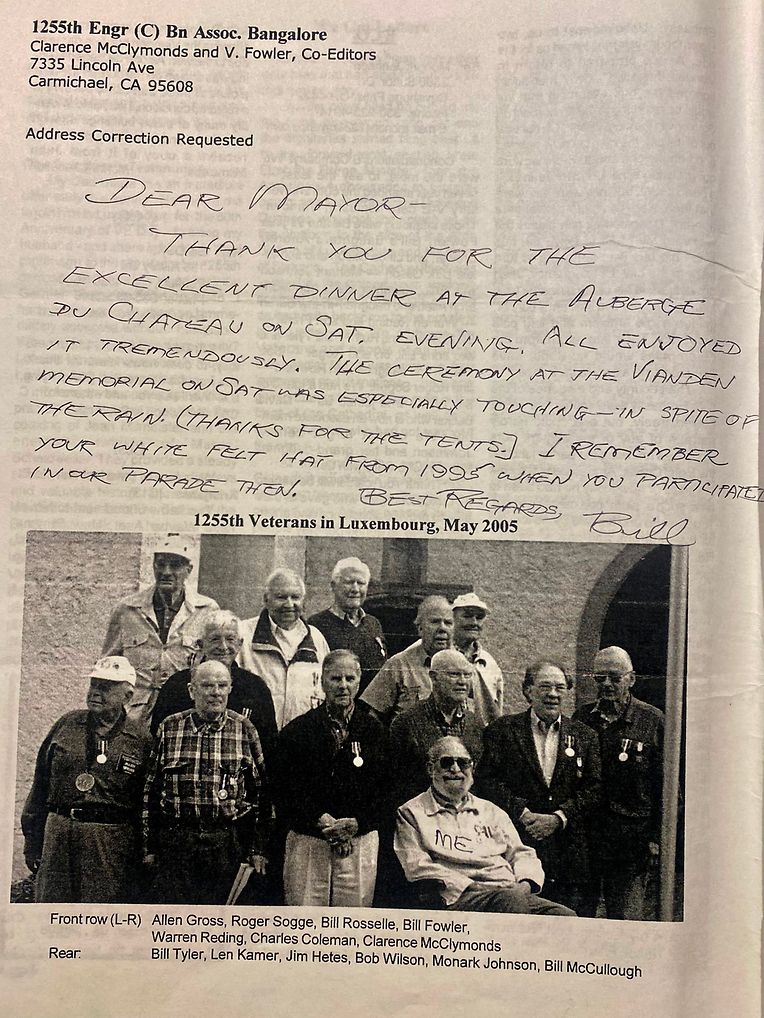 1255th Engr (C) Bn Assoc. Bangalore
Clarence McClymonds and V. Fowler, Co-Editors
7335 Lincoln Ave
Carmichael, CA 95608
Address Correction Requested
DEAR MAYOR-
THANK YOU FOR THE
EXCELLENT DINNER AT THE AUBERGE
DU CHATEAU ON SAT. EVENING. ALL ENJOYED
IT TREMENDOUSLY. THE CEREMONY AT THE VIANDEN
MEMORIAL ON SAT WAS ESPECIALLY TOUCHING-IN SPITE OF
THE RAIN. (THANKS FOR THE TENTS.) I REMEMBER
YOUR WHITE FELT HAT FROM 1995 WHEN YOU PARTICIPATED
IN OUR PARADE THEN. BEST REGARDS, Bill
1255th Veterans in Luxembourg, May 2005
ME
Front row (L-R) Allen Gross, Roger Sogge, Bill Rosselle, Bill Fowler,
Warren Reding, Charles Coleman, Clarence McClymonds
Rear: Bill Tyler, Len Kamer, Jim Hetes, Bob Wilson, Monark Johnson, Bill McCullough